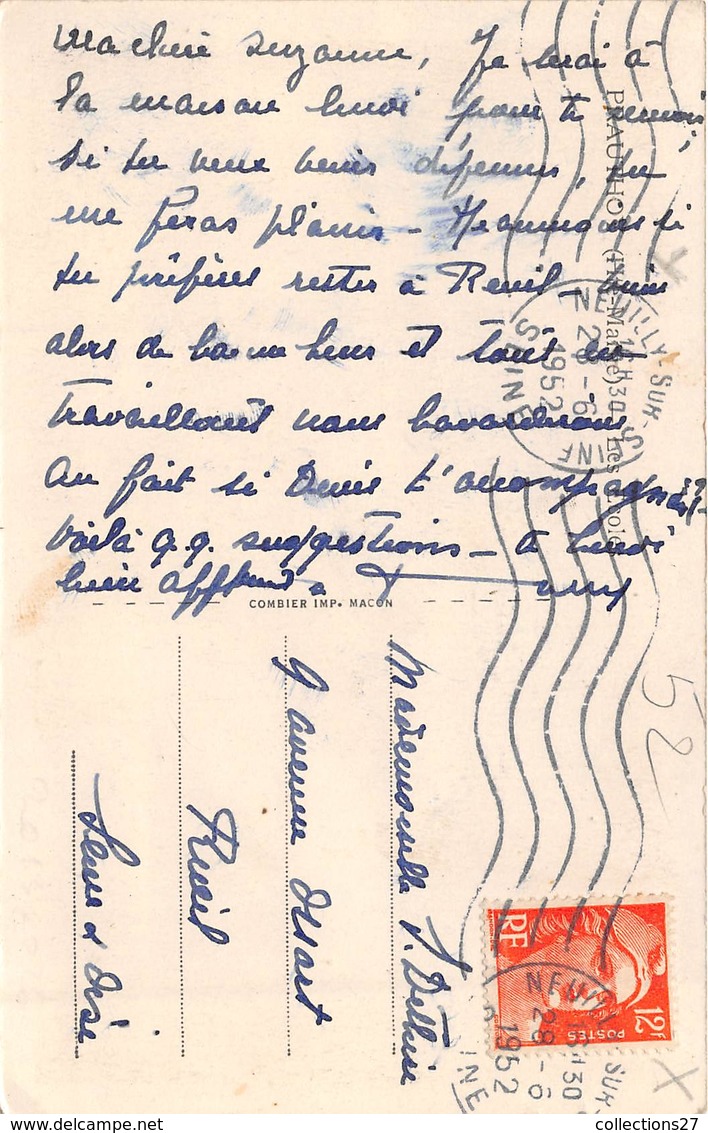 Ma chère Suzanne, Je serai à
la maison lundi pour te recevoir,
si tu veux venir déjeuner, tu
me feras plaisir - Néanmoins si
tu préfères rester à Rueil, viens
alors de bonne heure et tout en
travaillant nous bavarderons
Au fait si Denis t'accompagnait ??
Voilà q.q. suggestions - A lundi
bien affts
COMBIER IMP. MACON
Mademoiselle S. Dethise
9 avenue
Rueil
Seine et Oise
PRAUTHOY (Hte-Marne)
NEUILLY-SUR-SEINE
28-6
1952
SEINE
RF
12F
POSTES
NEUILLY-SUR-SEINE
18H30
28-6
1952
52
collections27